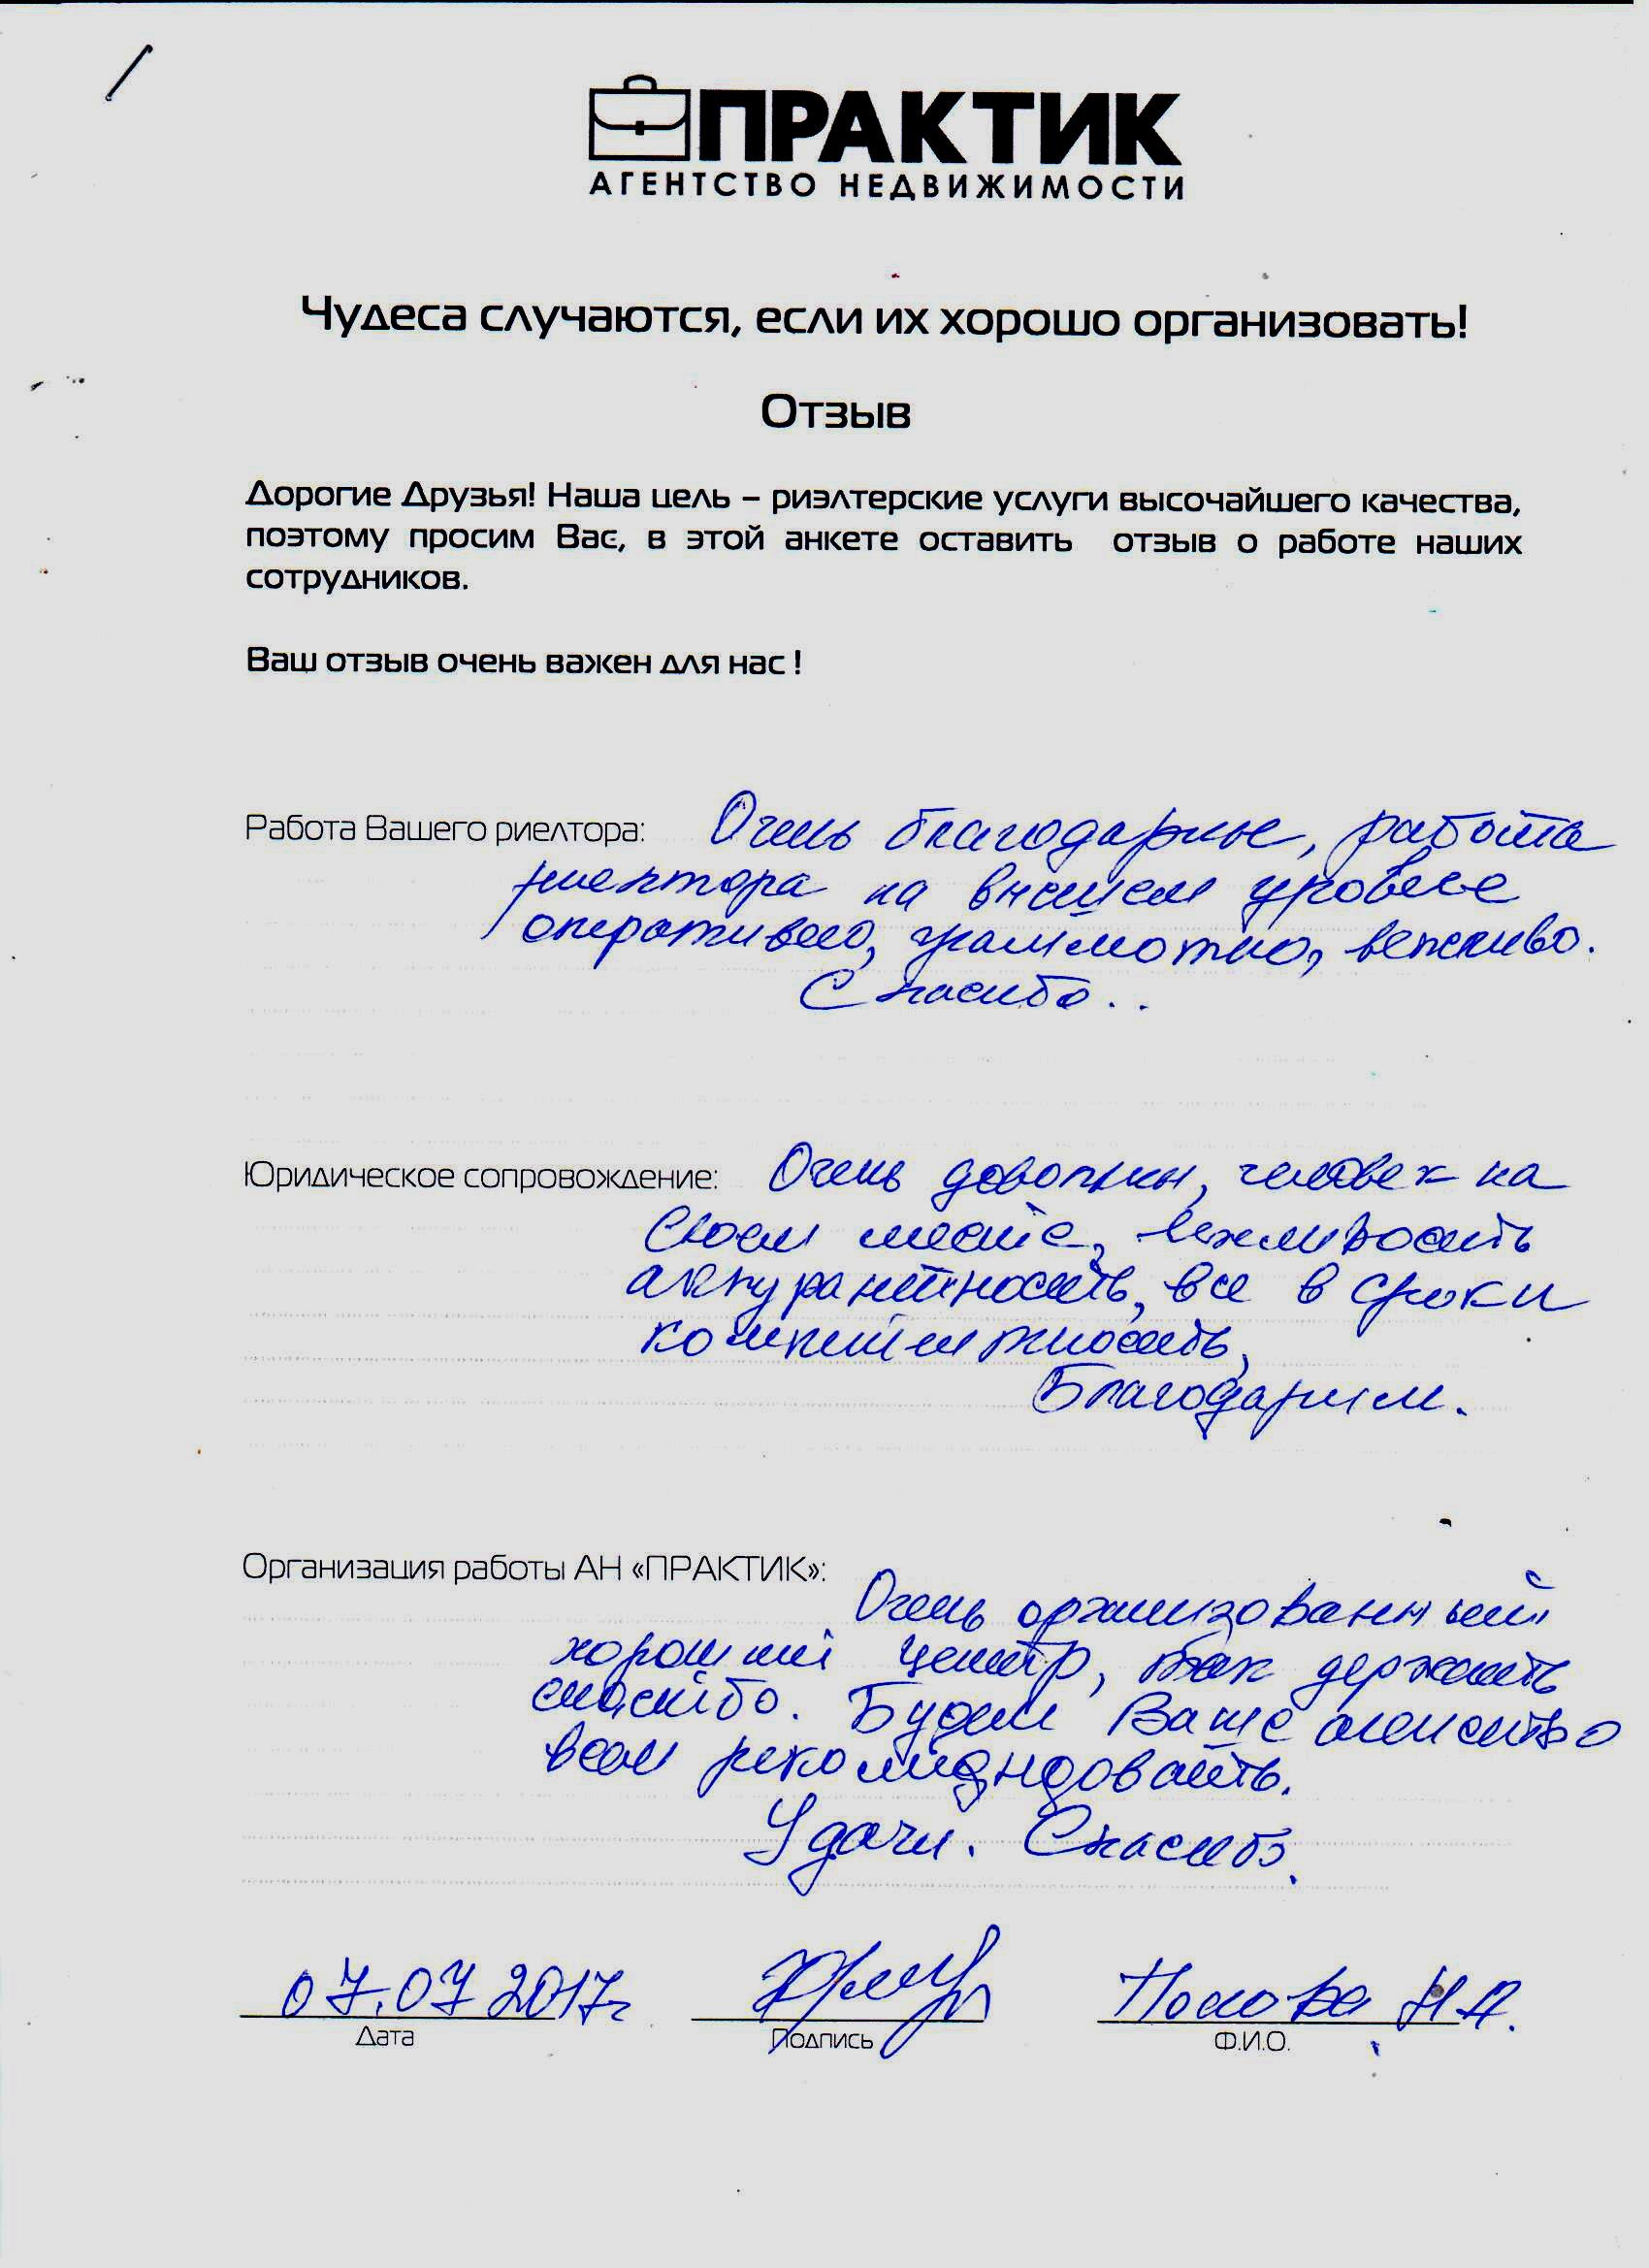 ПРАКТИК
АГЕНТСТВО НЕДВИЖИМОСТИ
Чудеса случаются, если их хорошо организовать!
Отзыв
Дорогие Друзья! Наша цель – риэлтерские услуги высочайшего качества,
поэтому просим Вас, в этой анкете оставить отзыв о работе наших
сотрудников.
Ваш отзыв очень важен для нас !
Работа Вашего риелтора: Очень благодарные, работа
риелтора на высшем уровне
оперативно, грамотно, вежливо.
Спасибо..
Юридическое сопровождение: Очень довольны, человек на
своем месте, вежливость
аккуратность, все в сроки
Благодарим.
Организация работы АН «ПРАКТИК»:
Очень организованный
хороший центр, так держать
спасибо. Будем Ваше агенство
всем
Удачи. Спасибо.
07.07 2017г
Дата
Подпись
Н.А.
Ф.И.О.